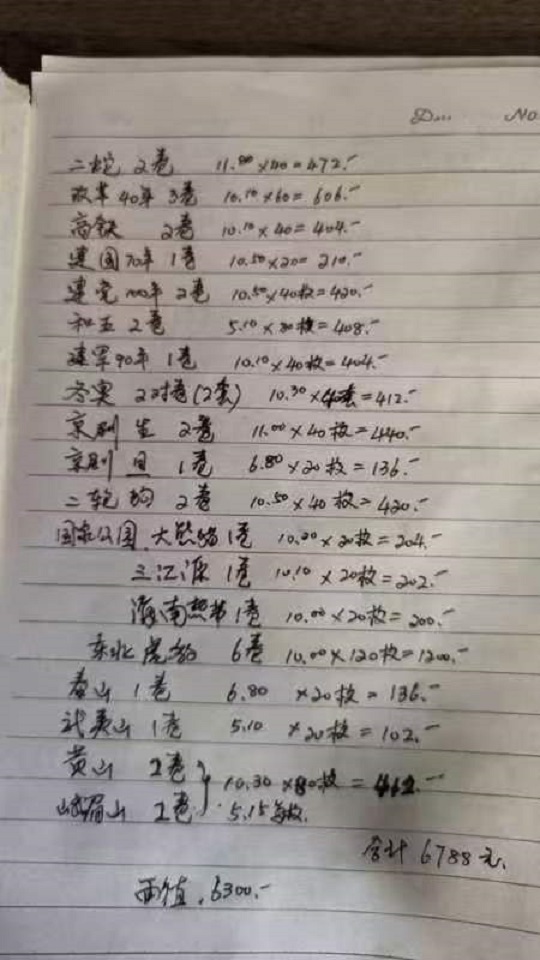 No
二蛇 2卷 11.80×40=472.-
改革40年 3卷 10.10×60=606.-
高铁 2卷 10.10×40=404.-
建国70年 1卷 10.50×20=210.-
建党100年 2卷 10.50×40枚=420.-
和五 2卷 5.10×80枚=408.-
建军90年 1卷 10.10×40枚=404.-
冬奥 2对卷(2套) 10.30×40套=412.-
京剧 生 2卷 11.00×40枚=440.-
京剧 旦 1卷 6.80×20枚=136.-
二轮狗 2卷 10.50×40枚=420.-
国家公园.大熊猫1卷 10.20×20枚=204.-
三江源 1卷 10.10×20枚=202.-
海南热带1卷 10.00×20枚=200.-
东北虎豹 6卷 10.00×120枚=1200.-
泰山 1卷 6.80 ×20枚=136.-
武夷山 1卷 5.10 ×20枚=102.-
黄山 2卷 10.30×80枚=412.-
峨眉山 2卷 5.15每枚.
合计 6788元.
面值.6300.-